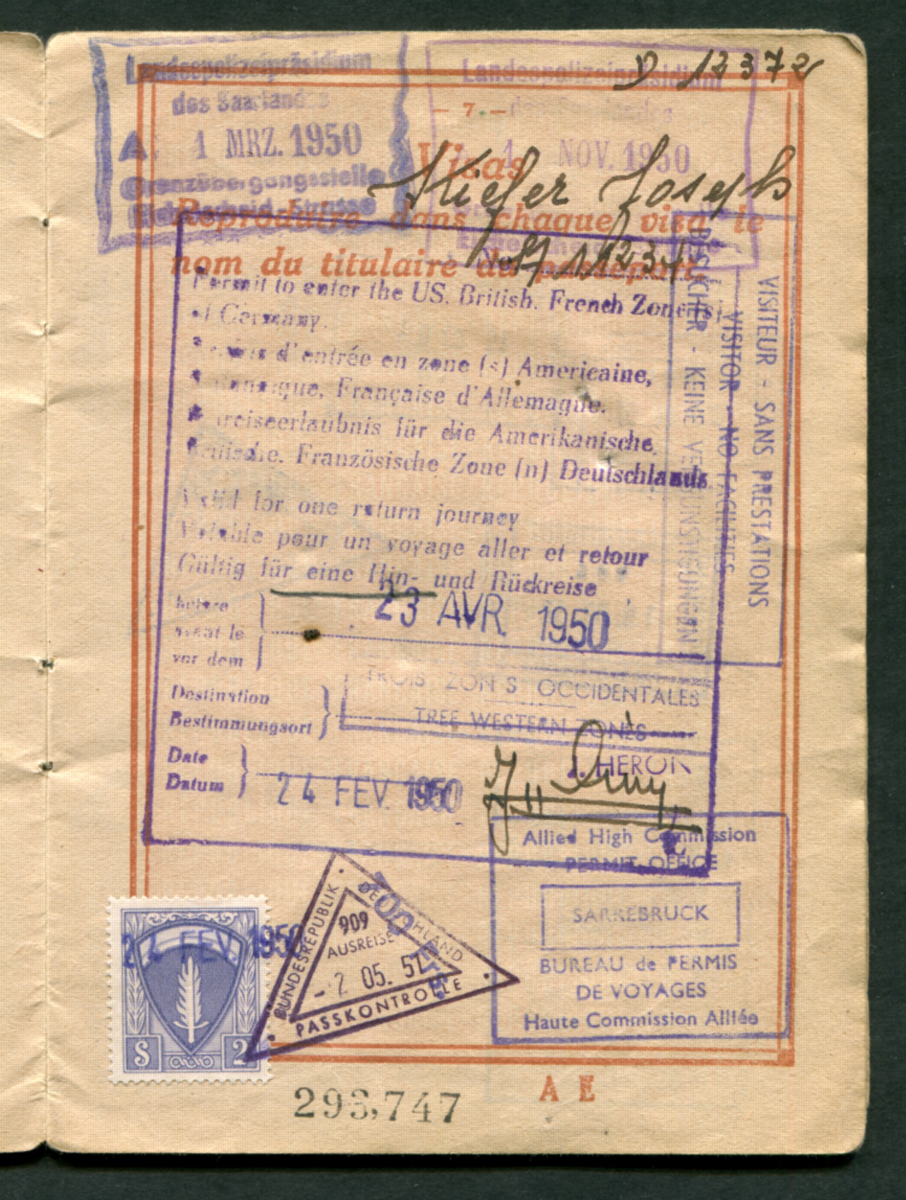 D 12372
Landespolizeipräsidium
des Saarlandes
1 MRZ. 1950
Grenzübergangsstelle
Landespolizeipräsidium
- 7 -
1 NOV. 1950
Visas
Reproduire dans chaque visa le
nom du titulaire du passeport
Kiefer Joseph
Permit to enter the US. British. French Zone (s)
of Germany.
Permis d'entrée en zone (s) Americaine,
Britannique, Française d'Allemagne.
Einreiseerlaubnis für die Amerikanische,
Britische, Französische Zone (n) Deutschlands
Valid for one return journey
Valable pour un voyage aller et retour
Gültig für eine Hin- und Rückreise
before
avant le
vor dem
23 AVR. 1950
Destination
Bestimmungsort
TROIS ZONES OCCIDENTALES
TREE WESTERN ZONES
Date
Datum
24 FEV. 1950
J. HERON
VISITEUR - SANS PRESTATIONS
VISITOR - NO FACILITIES
BESUCHER - KEINE VERGUNSTIGUNGEN
Allied High Commission
PERMIT OFFICE
SARREBRUCK
BUREAU de PERMIS
DE VOYAGES
Haute Commission Alliée
24 FEV. 1950
S 2
BUNDESREPUBLIK DEUTSCHLAND
909
AUSREISE
- 2 05. 51
PASSKONTROLLE
293,747
A E